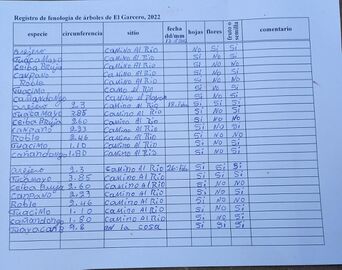 Registro de fenología de árboles de El Garcero, 2022
especie circunferencia sitio fecha dd/mm hojas flores fruto o semilla comentario
orejero camino Al Rio No Si Si
camino Al Rio Si No
Ceiba Bruja camino Al Rio Si No No
campano camino Al Rio Si No
Roble camino Al Rio Si No
Guacimo Si No Si
cañandongo camino al Si No Si
orejero 2.3 camino Al Rio Si Si Si
3.85 camino Al Rio Si No Si
ceiba Bruja 2.60 camino Al Rio Si No No
campano 2.33 camino Al Rio Si No Si
Roble 2.46 camino Al Rio Si No No
Guacimo 1.10 camino Al Rio Si No Si
cañandongo 1.80 camino Al Rio Si No Si
orejero 2.3 camino Al Rio Si Si Si
3.85 camino Al Rio Si Si Si
Ceiba Bruja 2.60 camino Al Rio Si No No
campano 2.33 camino Al Rio Si No Si
Roble 2.46 camino Al Rio Si No No
Guacimo 1.10 camino Al Rio Si No Si
cañandongo 1.80 camino Al Rio Si No Si
en la casa Si No Si